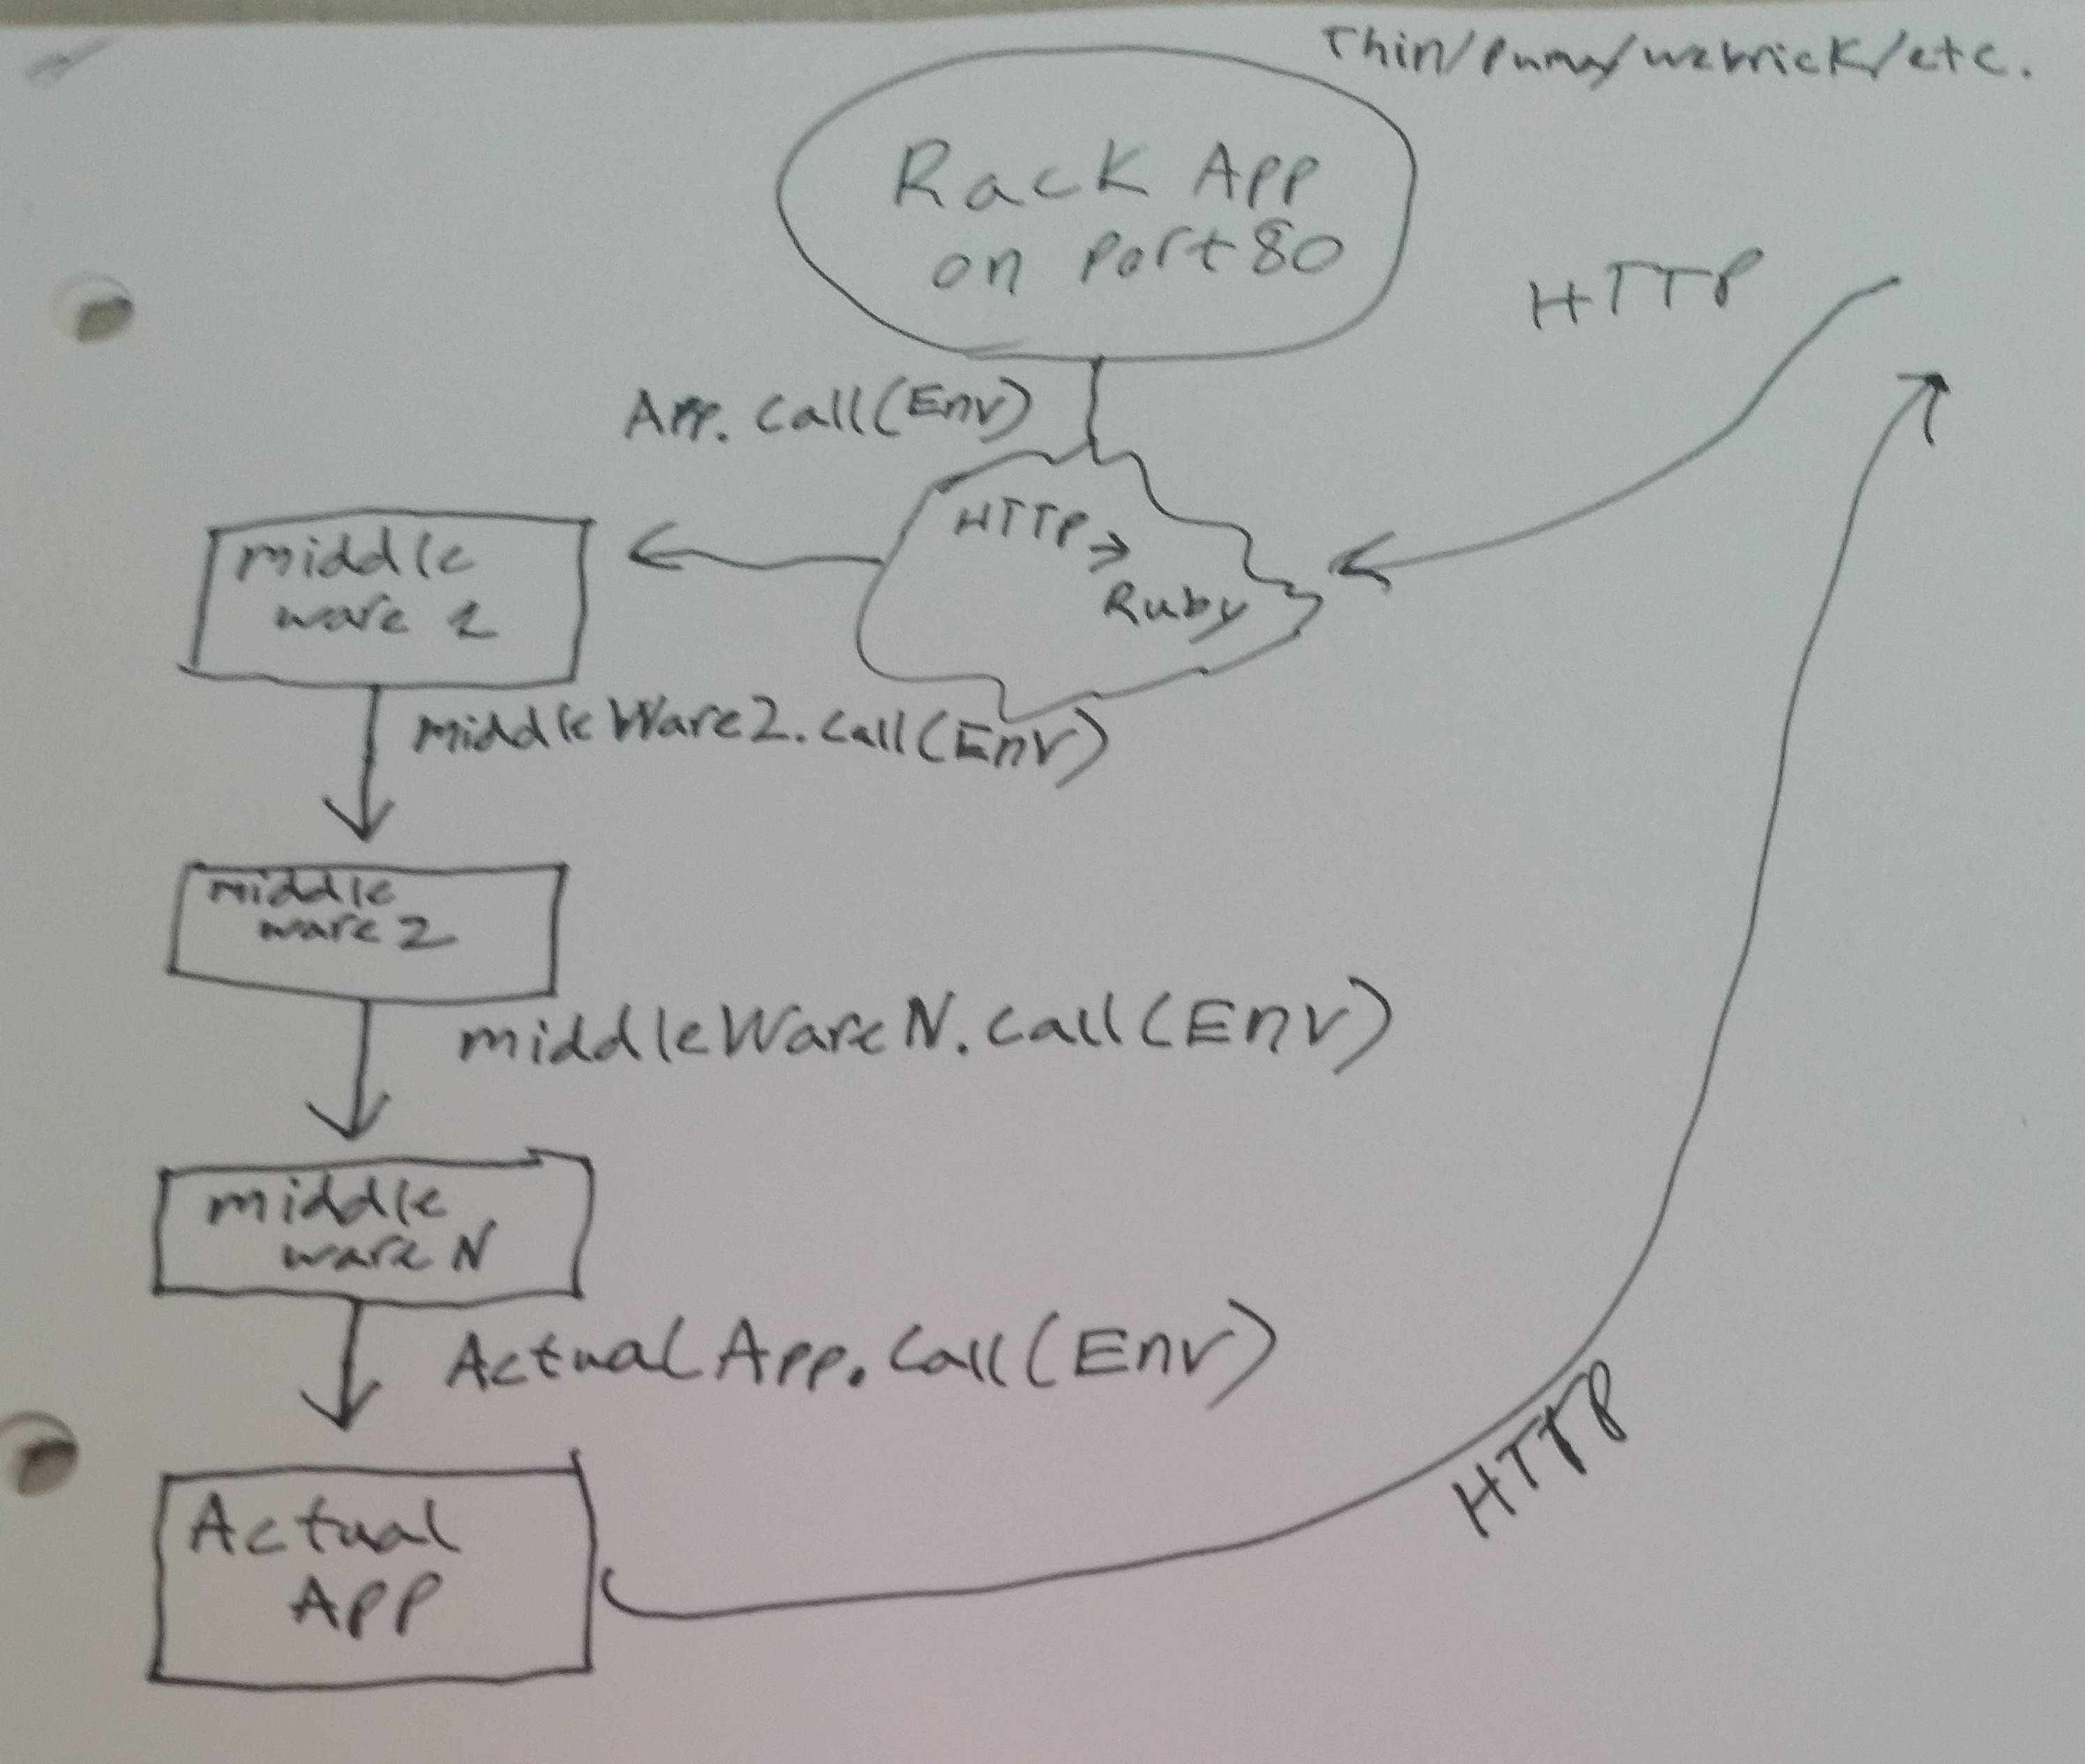 Thin/Puma/webrick/etc.
Rack App
on Port 80
HTTP
App.call(Env)
HTTP →
Ruby
middle
ware 1
middleWare2.call(Env)
middle
ware 2
middleWareN.call(Env)
middle
ware N
ActualApp.call(Env)
Actual
APP
HTTP